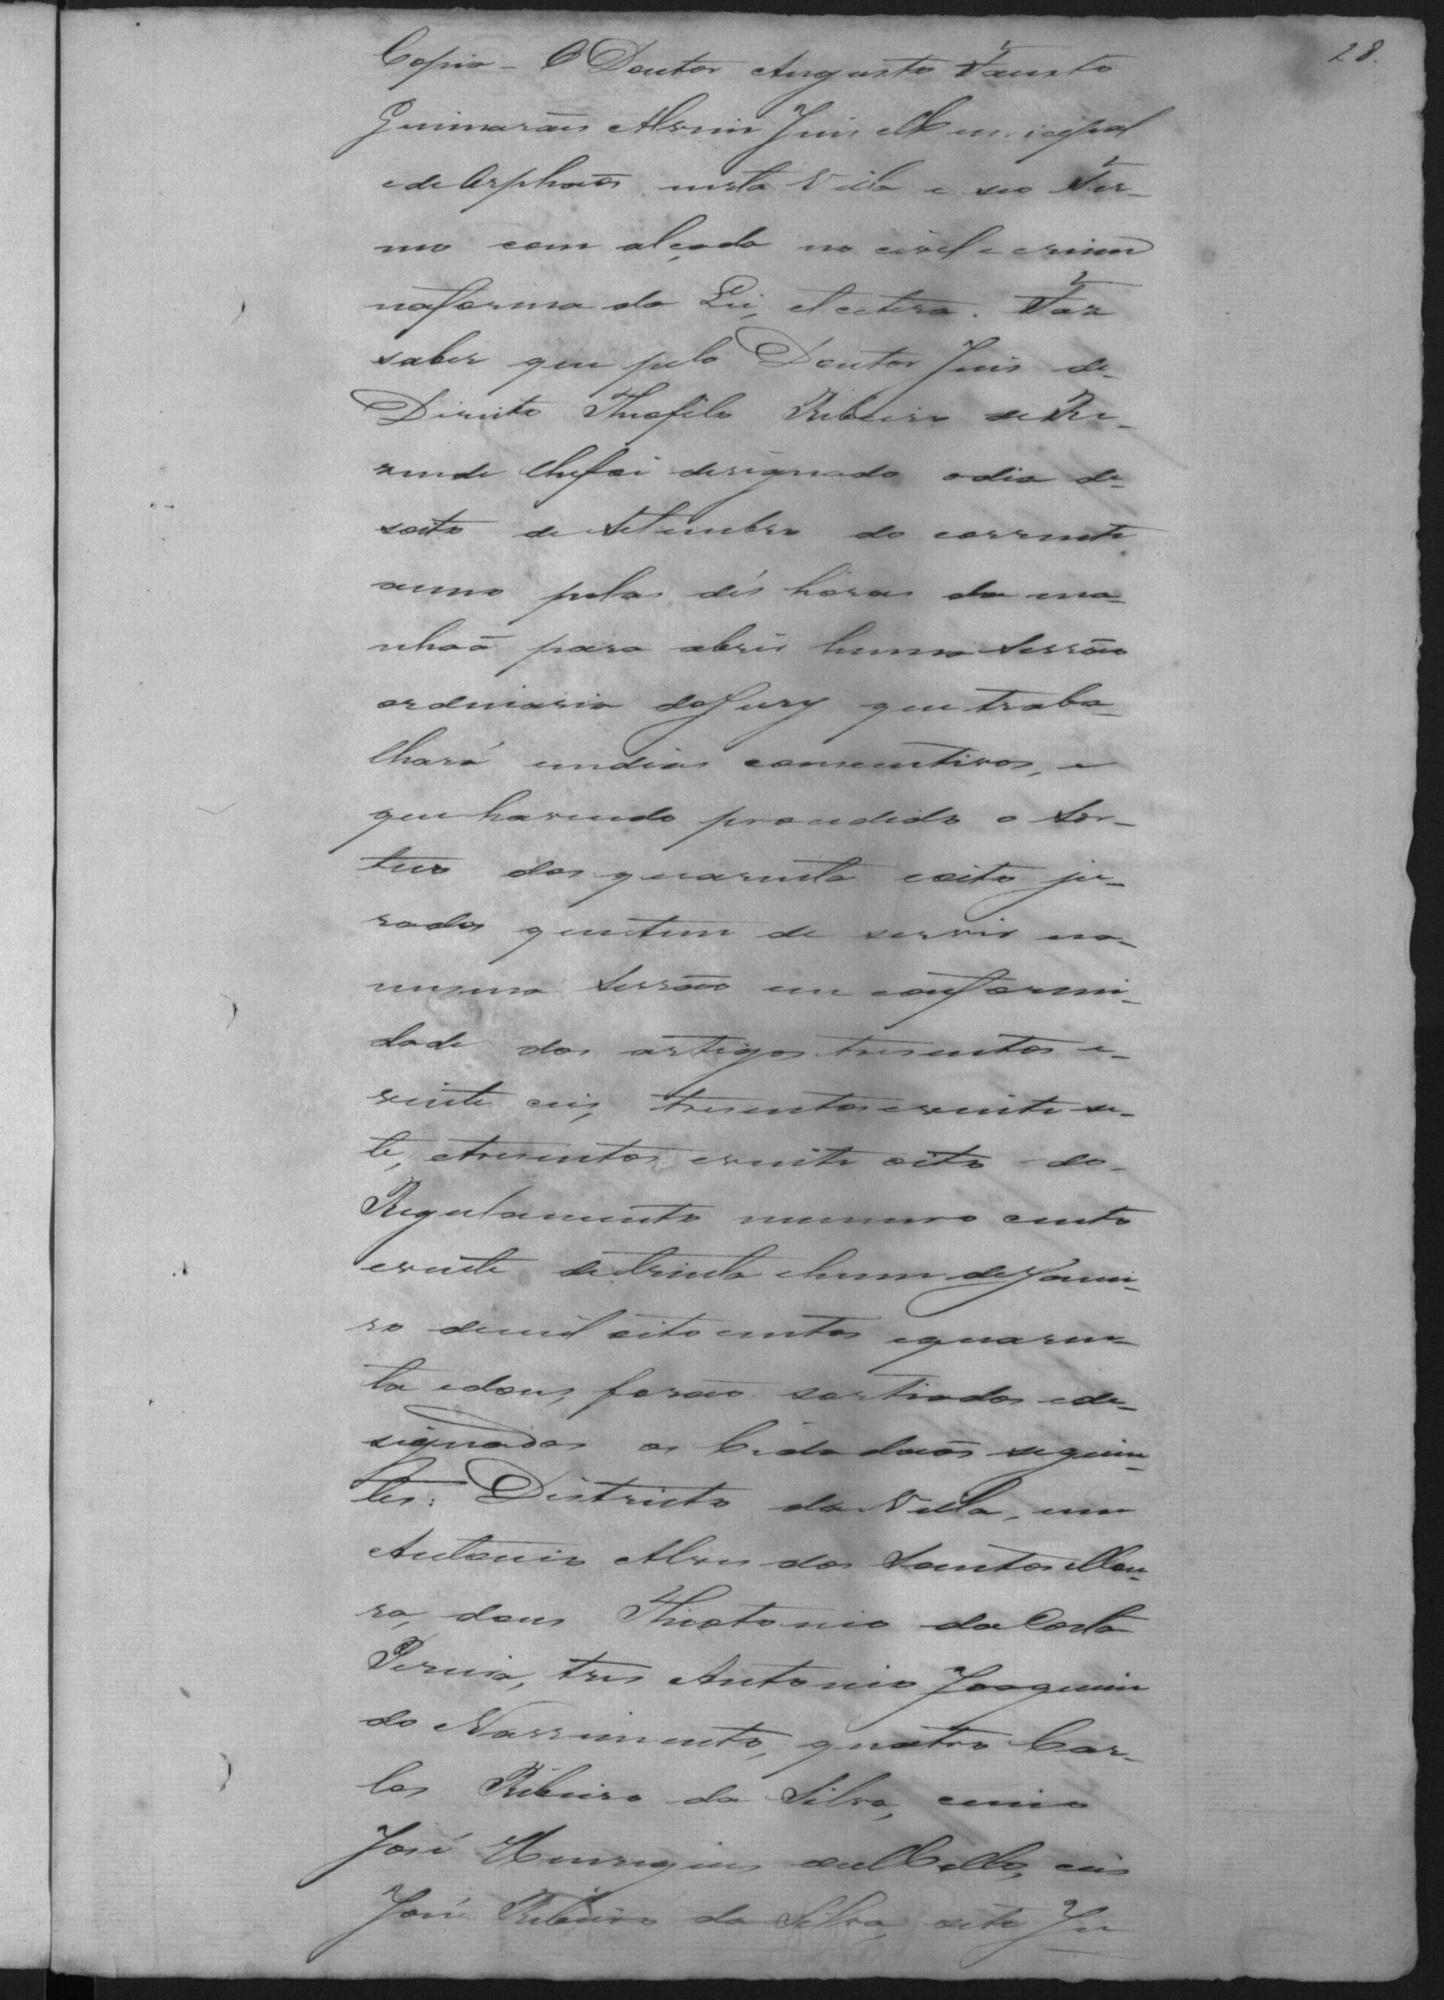 28.
Copia - O Doutor Augusto Fausto
Guimarães Alvim Juis Municipal
e de Orphaõs nesta Villa e seo Ter-
mo com alçada no civel e crime
na forma da Lei, et cetera. Faz
saber que pelo Doutor Juis de
Direito Theofilo Ribeiro de Re-
zende lhe foi designado o dia de-
soito de Setembro do corrente
anno pelas dés horas da ma-
nhaã para abrir huma Sessão
ordinaria do Jury que traba-
lhará em dias consecutivos, e
que havendo procedido o Sor-
teio dos quarenta e oito ju-
rados que tem de servir na
mesma Sessão em conformi-
dade dos artigos tresentos e
vinte eis, tresentos e vinte se-
te, e tresentos e vinte oito do
Regulamento numero cento
e vinte de trinta e hum de Janei-
ro de mil oito centos e quaren-
ta e dous, foraõ sortiados e de-
signados os Cidadaõs seguin-
tes: Districto da Villa, um
Antonio Alves dos Santos Mou-
ra, dous Thiotonio da Costa
Pereira, tres Antonio Joaquim
do Nassimento, quatro Car-
los Ribeiro da Silva, cinco
José Henriques de Mello, eis
José Ribeiro da Silva, sete Ju